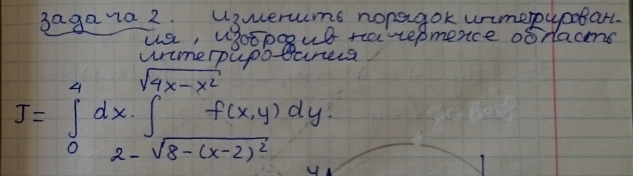 Задача 2. Изменить порядок интегрирован-
ия, изобразив на чертеже область
интегрирования
√(4x-x²)
4
J = ∫ dx. ∫ f(x,y) dy.
0
2-√(8-(x-2)²)
y